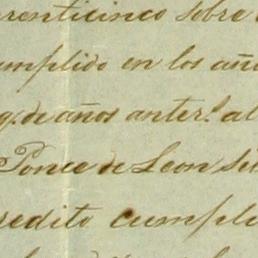 renticinco sobre
umplido en los año
q.e de años anter.s al
Ponce de Leon si
redito cumpli